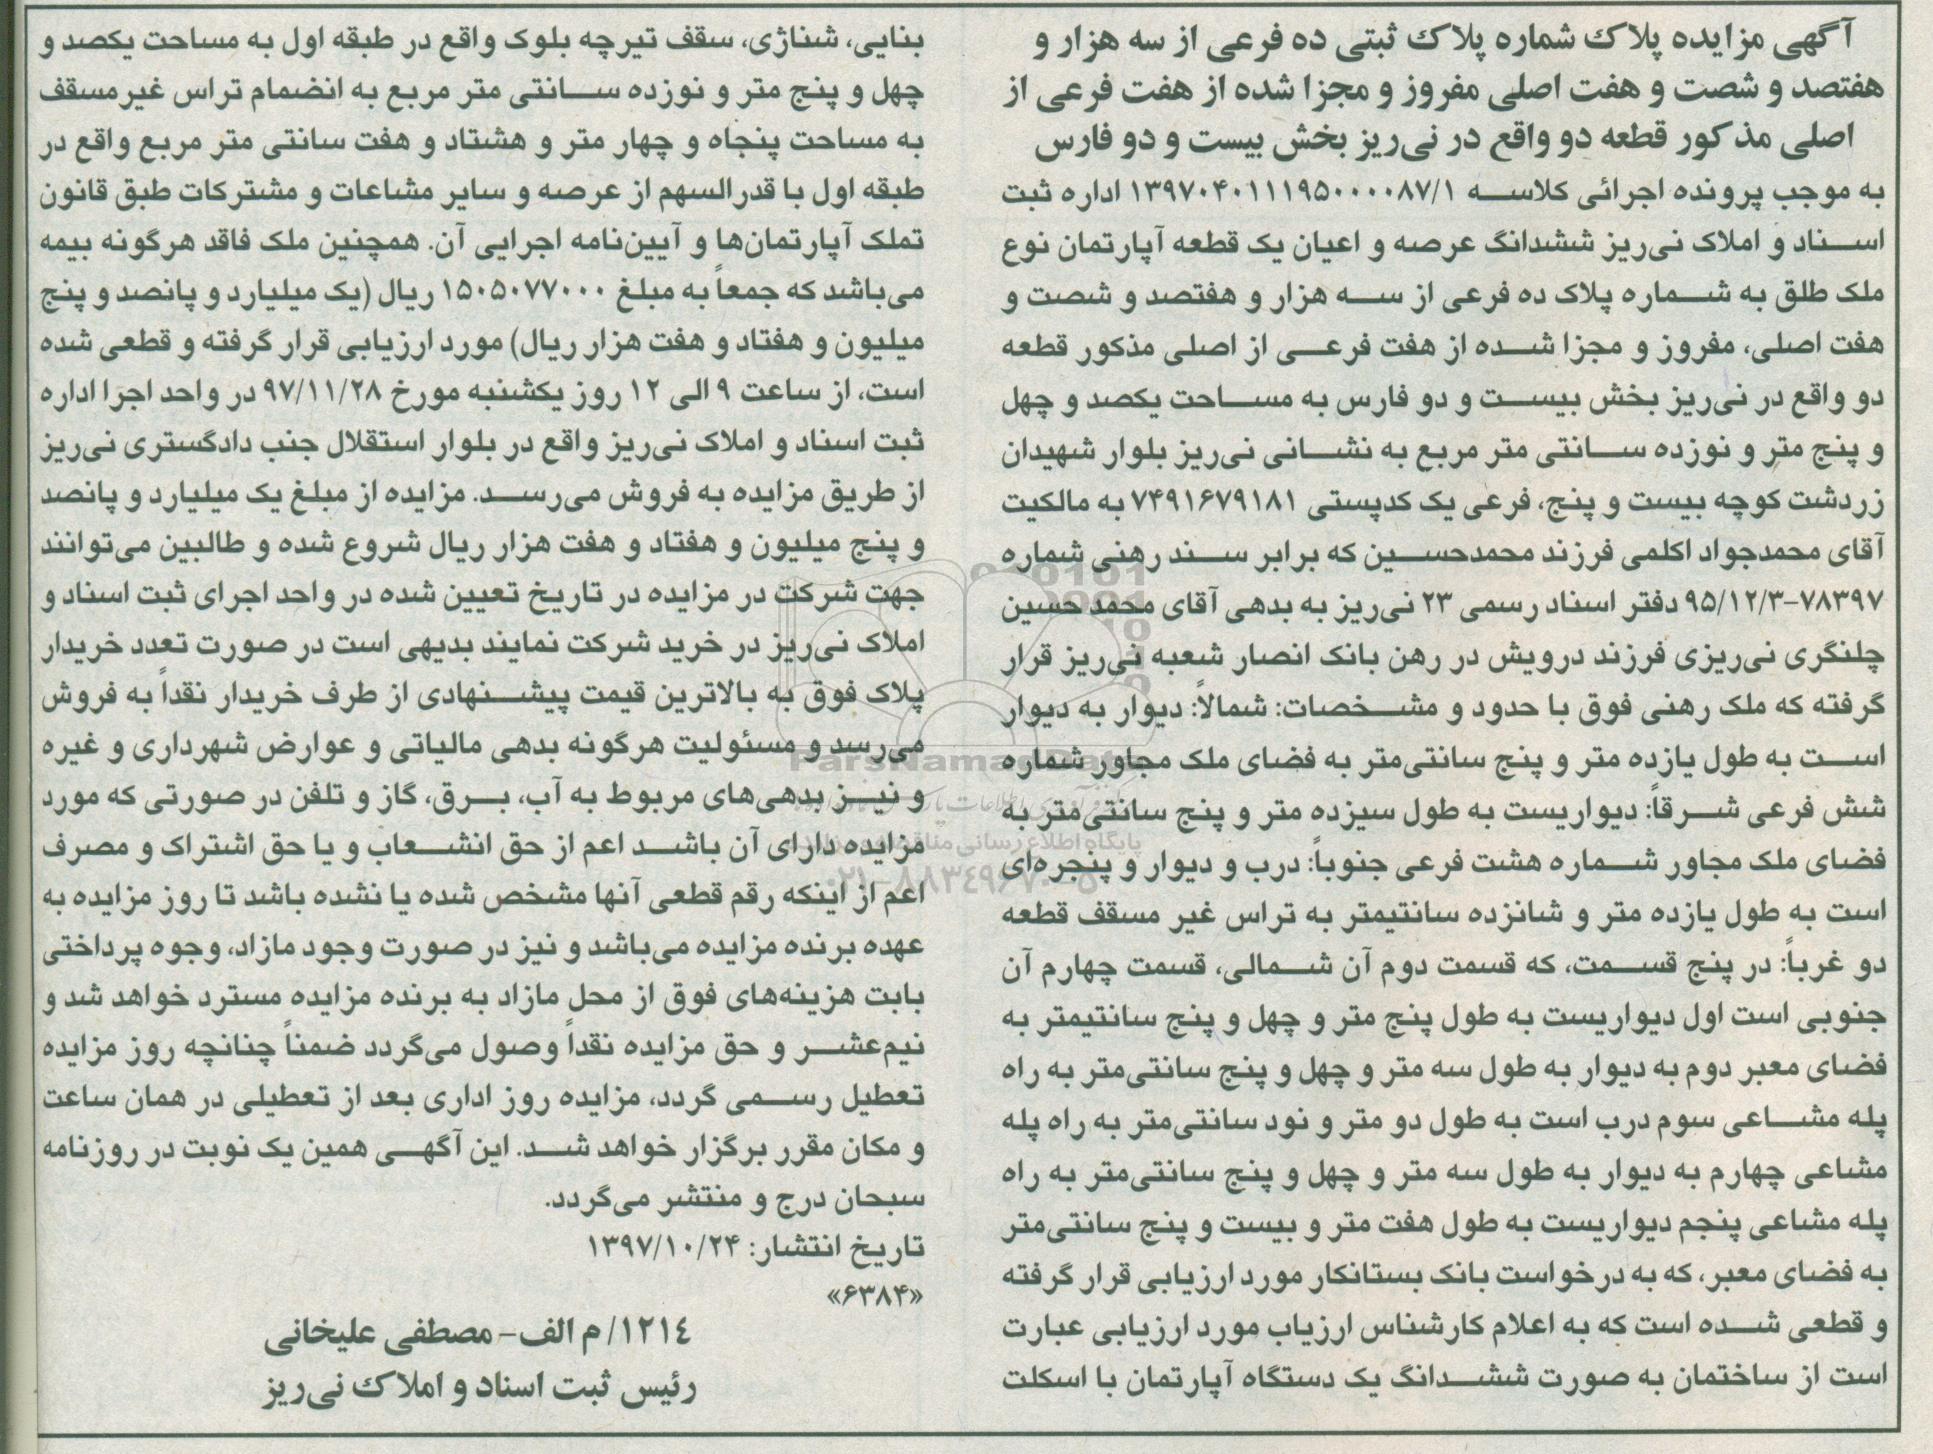 آگهی مزایده پلاک شماره پلاک ثبتی ده فرعی از سه هزار و
هفتصد و شصت و هفت اصلی مفروز و مجزا شده از هفت فرعی از
اصلی مذکور قطعه دو واقع در نی‌ریز بخش بیست و دو فارس
به موجب پرونده اجرائی کلاسه ۱۳۹۷۰۴۰۱۱۱۹۵۰۰۰۰۸۷/۱ اداره ثبت
اسناد و املاک نی‌ریز ششدانگ عرصه و اعیان یک قطعه آپارتمان نوع
ملک طلق به شماره پلاک ده فرعی از سه هزار و هفتصد و شصت و
هفت اصلی، مفروز و مجزا شده از هفت فرعی از اصلی مذکور قطعه
دو واقع در نی‌ریز بخش بیست و دو فارس به مساحت یکصد و چهل
و پنج متر و نوزده سانتی متر مربع به نشانی نی‌ریز بلوار شهیدان
زردشت کوچه بیست و پنج، فرعی یک کدپستی ۷۴۹۱۶۷۹۱۸۱ به مالکیت
آقای محمدجواد اکلمی فرزند محمدحسین که برابر سند رهنی شماره
۷۸۳۹۷-۹۵/۱۲/۳ دفتر اسناد رسمی ۲۳ نی‌ریز به بدهی آقای محمد حسین
چلنگری نی‌ریزی فرزند درویش در رهن بانک انصار شعبه نی‌ریز قرار
گرفته که ملک رهنی فوق با حدود و مشخصات: شمالاً: دیوار به دیوار
است به طول یازده متر و پنج سانتی‌متر به فضای ملک مجاور شماره
شش فرعی شرقاً: دیواریست به طول سیزده متر و پنج سانتی‌متر به
فضای ملک مجاور شماره هشت فرعی جنوباً: درب و دیوار و پنجره‌ای
است به طول یازده متر و شانزده سانتیمتر به تراس غیر مسقف قطعه
دو غرباً: در پنج قسمت، که قسمت دوم آن شمالی، قسمت چهارم آن
جنوبی است اول دیواریست به طول پنج متر و چهل و پنج سانتیمتر به
فضای معبر دوم به دیوار به طول سه متر و چهل و پنج سانتی‌متر به راه
پله مشاعی سوم درب است به طول دو متر و نود سانتی‌متر به راه پله
مشاعی چهارم به دیوار به طول سه متر و چهل و پنج سانتی‌متر به راه
پله مشاعی پنجم دیواریست به طول هفت متر و بیست و پنج سانتی‌متر
به فضای معبر، که به درخواست بانک بستانکار مورد ارزیابی قرار گرفته
و قطعی شده است که به اعلام کارشناس ارزیاب مورد ارزیابی عبارت
است از ساختمان به صورت ششدانگ یک دستگاه آپارتمان با اسکلت
بنایی، شناژی، سقف تیرچه بلوک واقع در طبقه اول به مساحت یکصد و
چهل و پنج متر و نوزده سانتی متر مربع به انضمام تراس غیرمسقف
به مساحت پنجاه و چهار متر و هشتاد و هفت سانتی متر مربع واقع در
طبقه اول با قدرالسهم از عرصه و سایر مشاعات و مشترکات طبق قانون
تملک آپارتمان‌ها و آیین‌نامه اجرایی آن. همچنین ملک فاقد هرگونه بیمه
می‌باشد که جمعاً به مبلغ ۱۵۰۵۰۷۷۰۰۰ ریال (یک میلیارد و پانصد و پنج
میلیون و هفتاد و هفت هزار ریال) مورد ارزیابی قرار گرفته و قطعی شده
است، از ساعت ۹ الی ۱۲ روز یکشنبه مورخ ۹۷/۱۱/۲۸ در واحد اجرا اداره
ثبت اسناد و املاک نی‌ریز واقع در بلوار استقلال جنب دادگستری نی‌ریز
از طریق مزایده به فروش می‌رسد. مزایده از مبلغ یک میلیارد و پانصد
و پنج میلیون و هفتاد و هفت هزار ریال شروع شده و طالبین می‌توانند
جهت شرکت در مزایده در تاریخ تعیین شده در واحد اجرای ثبت اسناد و
املاک نی‌ریز در خرید شرکت نمایند بدیهی است در صورت تعدد خریدار
پلاک فوق به بالاترین قیمت پیشنهادی از طرف خریدار نقداً به فروش
می‌رسد و مسئولیت هرگونه بدهی مالیاتی و عوارض شهرداری و غیره
و نیز بدهی‌های مربوط به آب، برق، گاز و تلفن در صورتی که مورد
مزایده دارای آن باشد اعم از حق انشعاب و یا حق اشتراک و مصرف
اعم از اینکه رقم قطعی آنها مشخص شده یا نشده باشد تا روز مزایده به
عهده برنده مزایده می‌باشد و نیز در صورت وجود مازاد، وجوه پرداختی
بابت هزینه‌های فوق از محل مازاد به برنده مزایده مسترد خواهد شد و
نیم‌عشر و حق مزایده نقداً وصول می‌گردد ضمناً چنانچه روز مزایده
تعطیل رسمی گردد، مزایده روز اداری بعد از تعطیلی در همان ساعت
و مکان مقرر برگزار خواهد شد. این آگهی همین یک نوبت در روزنامه
سبحان درج و منتشر می‌گردد.
تاریخ انتشار: ۱۳۹۷/۱۰/۲۴
«۶۳۸۴»
۱۲۱٤/ م الف- مصطفی علیخانی
رئیس ثبت اسناد و املاک نی‌ریز
ParsNamadData
۰۲۱-۸۸۳٤۹۶۷۰-۵